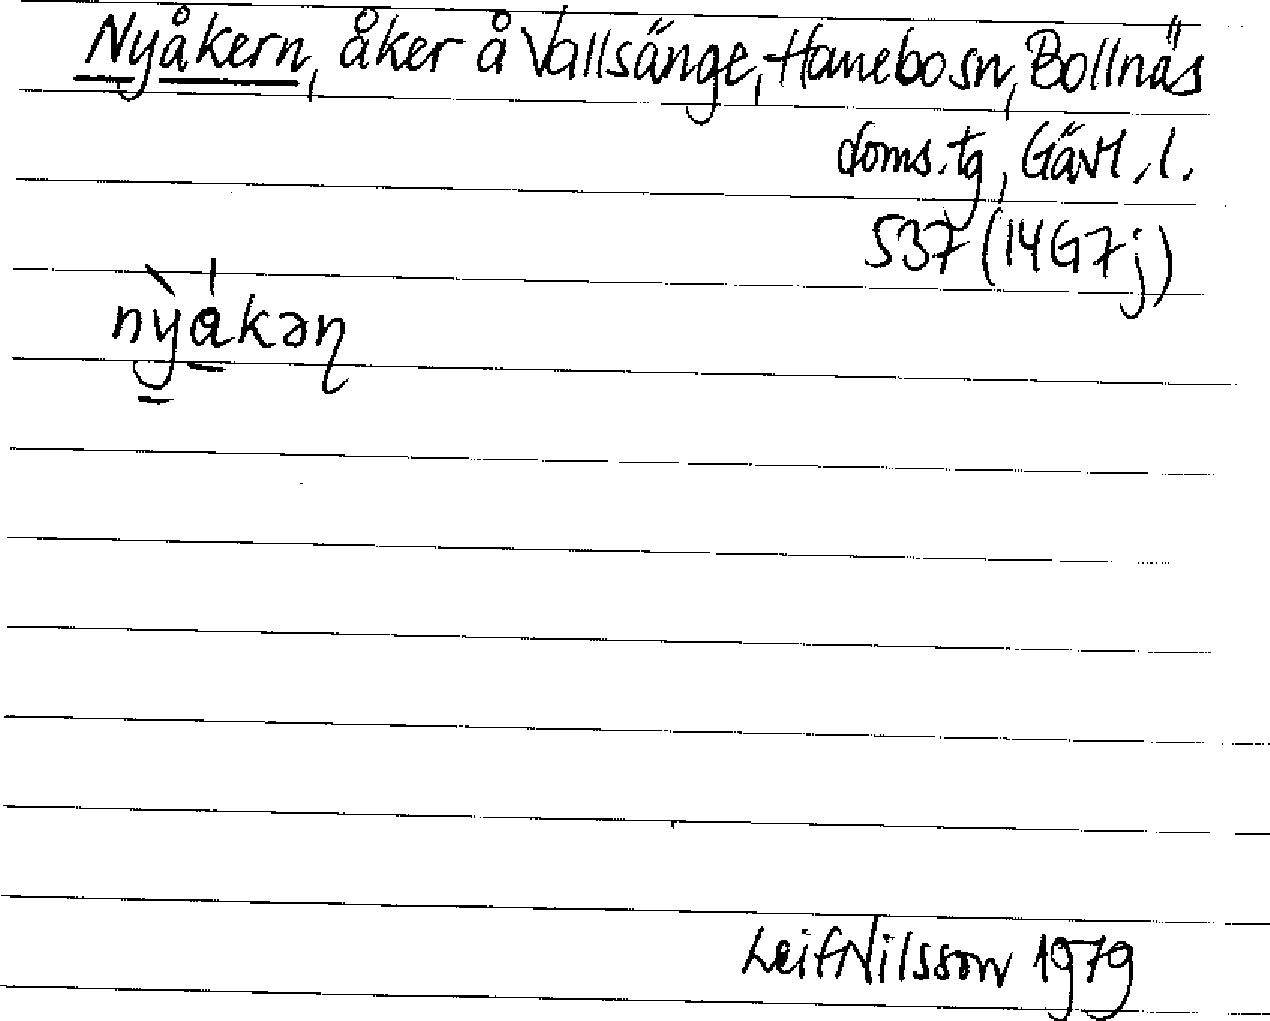 Nyåkern, åker å Vallsänge, Hanebosn, Bollnäs
doms.tg, Gävl.l.
537 (14G7j)
nỳákəɳ
Leif Nilsson 1979